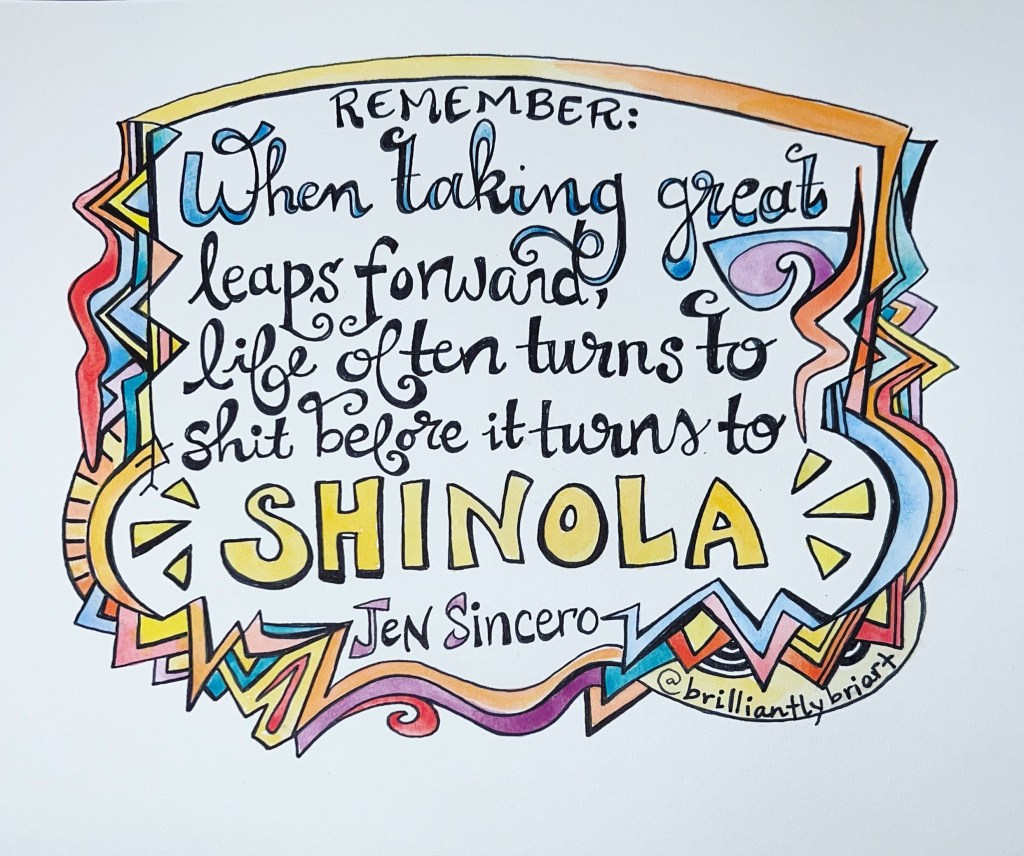 REMEMBER:
When taking great
leaps forward,
life often turns to
shit before it turns to
SHINOLA
Jen Sincero
@brilliantlybriart